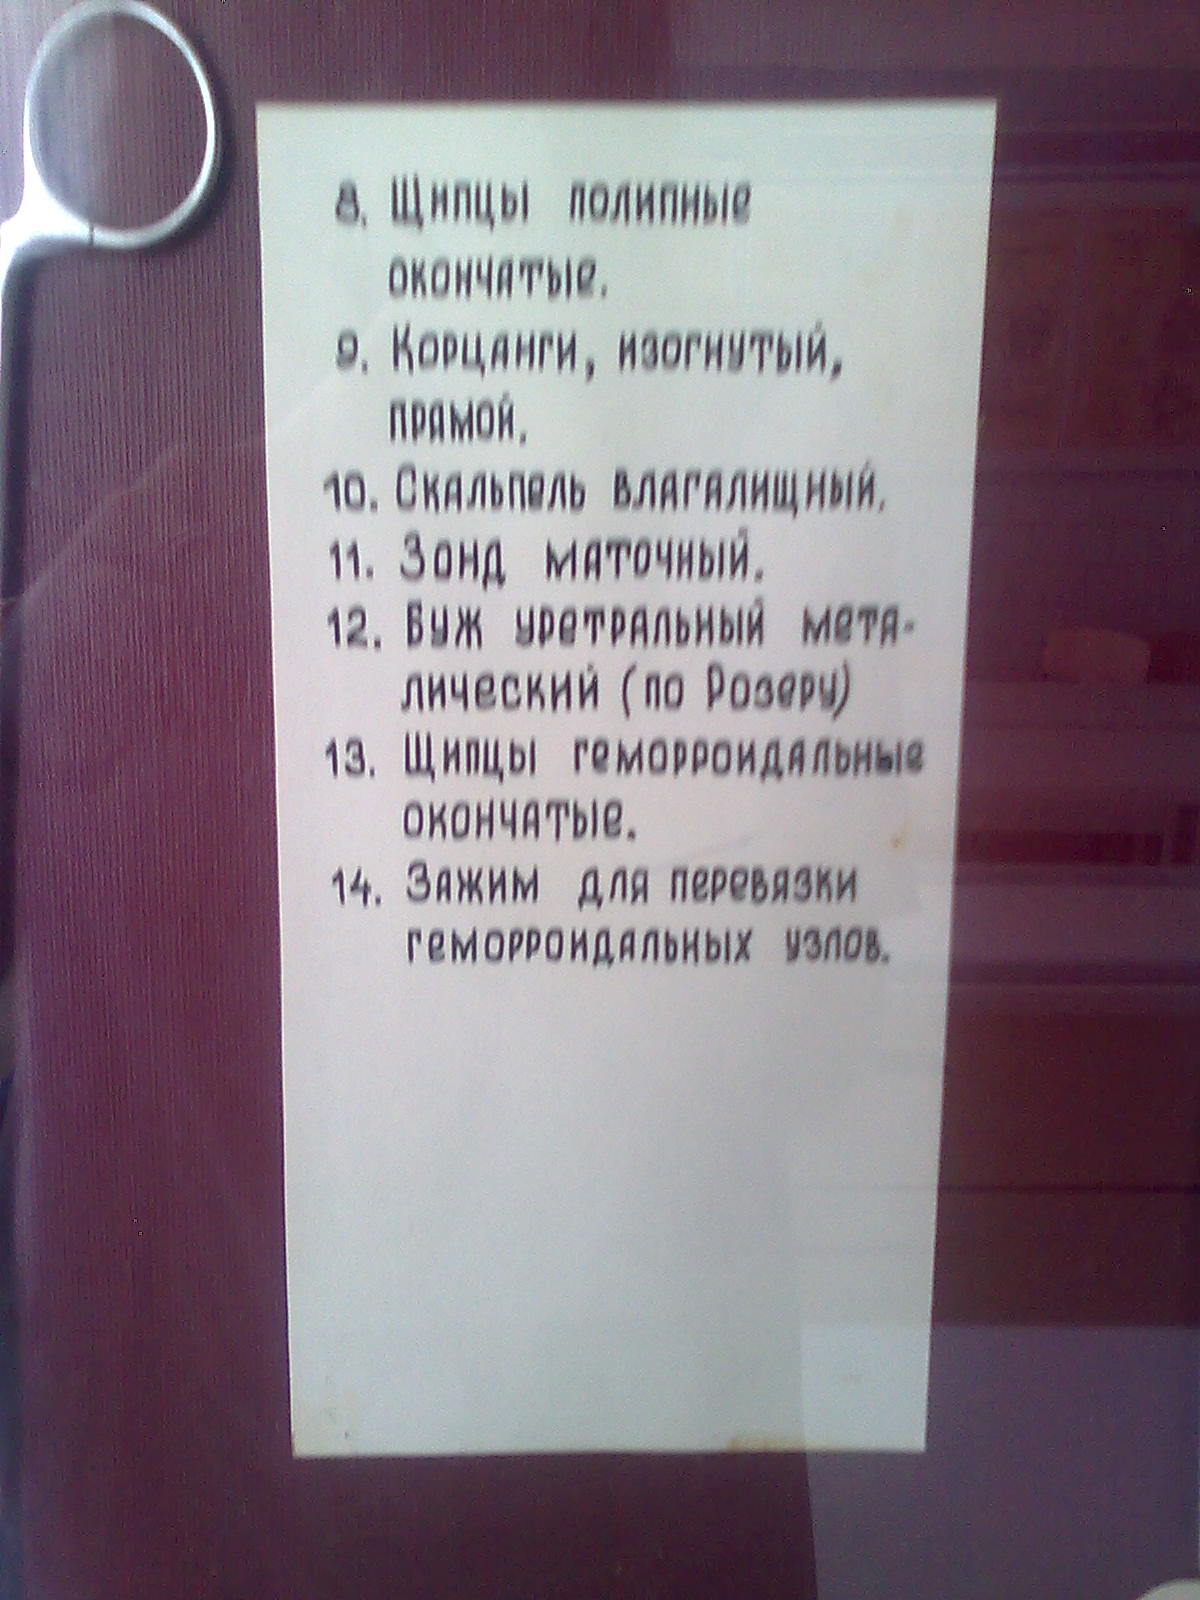 8. Щипцы полипные
окончатые.
9. Корцанги, изогнутый,
прямой.
10. Скальпель влагалищный.
11. Зонд маточный.
12. Буж уретральный мета-
лический (по Розеру)
13. Щипцы геморроидальные
окончатые.
14. Зажим для перевязки
геморроидальных узлов.